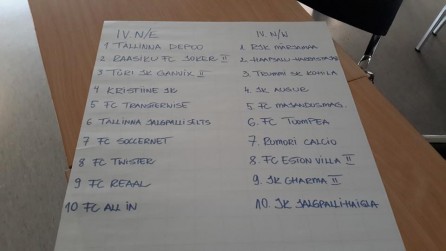 IV. N/E
1 TALLINNA DEPOO
2 RAASIKU FC JOKER II
3 TÜRI SK GANVIX II
4 KRISTIINE SK
5 FC TRANSFERWISE
6 TALLINNA JALGPALLISELTS
7 FC SOCCERNET
8 FC TWISTER
9 FC REAAL
10 FC ALL IN
IV. N/W
1.
2.
3. TRUMMI SK KOHILA
4. SK AUGUR
5. FC
6. FC TOOMPEA
7. RUMORI CALCIO
8. FC ESTON VILLA II
9. SK CHARMA II
10. SK JALGPALLIHAIGLA